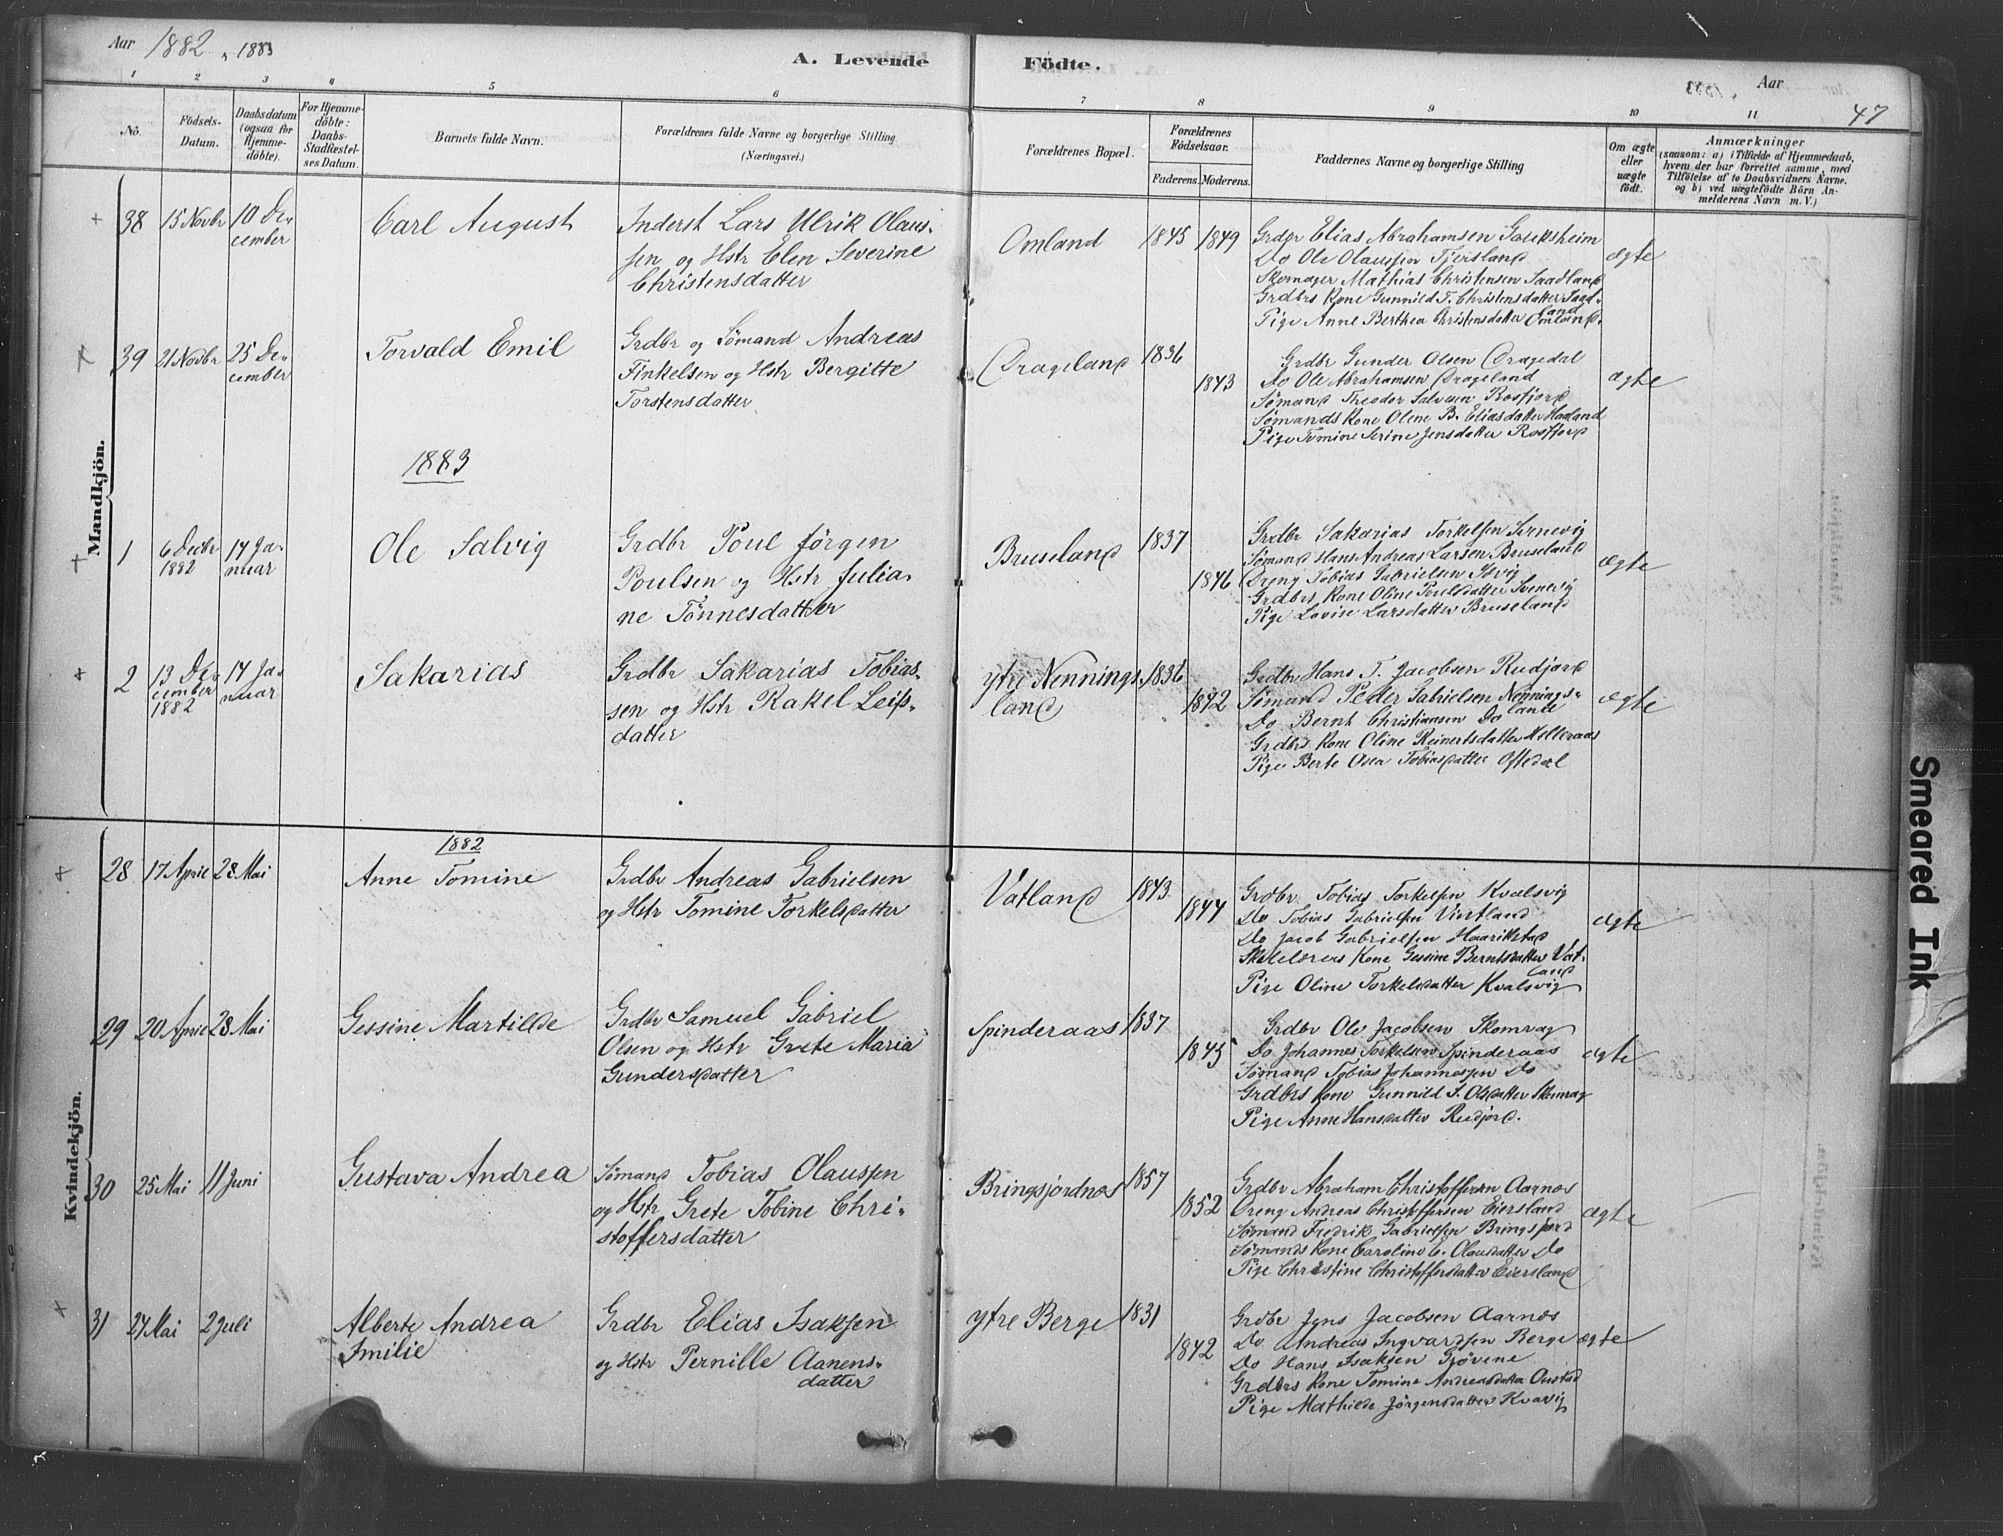 Aar 1882 " 1883
A. Levende Födte.
Aar
47
1 2 3 4 5 6 7 8 9 10 11
No.
Födsels-
Datum.
Daabsdatum
(ogsaa for
Hjemme-
döbte).
For Hjemme-
döbte:
Daabs-
Stadfæstel-
ses Datum.
Barnets fulde Navn.
Forældrenes fulde Navne og borgerlige Stilling.
(Næringsvei.)
Forældrenes Bopæl.
Forældrenes
Födselsaar.
Faderens. Moderens.
Faddernes Navne og borgerlige Stilling
Om ægte
eller
uægte
födt.
Anmærkninger
(saasom: a) i Tilfælde af Hjemmedaab,
hvem der har forrettet samme, med
Tilföielse af to Daabsvidners Navne,
og b) ved uægtefödte Börn An-
melderens Navn m. V.)
Mandkjön.
38
15 Novbr
10 De-
cember
Carl August
Inderst Lars Ulrik Olaus-
sen og Hstr Elen Severine
Christensdatter
Omland
1845 1849
Grdbr Elias Abrahamsen
Do Ole Olaussen Tjersland
Skomager Mathias Christensen Saadland
Grdbrs Kone Gunnild T. Christensdatter Saad-
land
Pige Anne Berthea Christensdatter Omland.
ægte
39
21 Novbr
25 De-
cember
Torvald Emil
Grdbr og Sømand Andreas
Finkelsen og Hstr Bergitte
Torstensdatter
Drageland
1836
1843
Grdbr Gunder Olsen Dragedal
Do Ole Abrahamsen Drageland
Sømand Theodor Salvesen Rosfjord
Sømands Kone Olene B. Eliasdatter Haaland
Pige Tomine Serine Jensdatter Rosfjord
ægte
1883
1
6 Decbr
1882
14 Ja-
nuar
Ole Salvig
Grdbr Poul Jørgen
Poulsen og Hstr Julia-
ne Tönnesdatter
Bruseland
1837
1846
Grdbr Sakarias Torkelsen Svenevig
Sømand Hans Andreas Larsen Bruseland
Dreng Tobias Gabrielsen
Grdbrs Kone Oline Poulsdatter Svenevig
Pige Lovise Larsdatter Bruseland
ægte
2
13 De-
cember
1882
14 Ja-
nuar
Sakarias
Grdbr Sakarias Tobias-
sen og Hstr Rakel Leifs-
datter
ytre Nennings-
land
1836
1842
Grdbr Hans T. Jacobsen Rudjord
Sømand Peder Gabrielsen Nennings-
land
Do Bernt Christiansen Do
Grdbrs Kone Oline Reinertsdatter Helleraas
Pige Berte Osea Tobiasdatter Oftedal
ægte
Kvindekjön.
1882
28
17 April
28 Mai
Anne Tomine
Grdbr Andreas Gabrielsen
og Hstr Tomine Torkelsdatter
Vatland
1843
1844
Grdbr Tobias Torkelsen Kvalsvig
Do Tobias Gabrielsen Vatland
Do Jacob Gabrielsen Haarikstad
Skolelærers Kone Gessine Berntsdatter Vat-
land
Pige Oline Torkelsdatter Kvalsvig
ægte
29
20 April
28 Mai
Gessine Martilde
Grdbr Samuel Gabriel
Olsen og Hstr Grete Maria
Gundersdatter
Spinderaas
1837
1845
Grdbr Ole Jacobsen Skomrag
Do Johannes Torkelsen Spinderaas
Sømand Tobias Johannessen Do
Grdbrs Kone Gunnild S. Olsdatter Skomrag
Pige Anne Hansdatter Rudjord.
ægte
30
25 Mai
11 Juni
Gustava Andrea
Sømand Tobias Olaussen
og Hstr Grete Tobine Chri-
stoffersdatter
Bringsjordnes
1857
1852
Grdbr Abraham Christoffersen Aarnes
Dreng Andreas Christoffersen Eiersland
Sømand Fredrik Gabrielsen Bringsjord
Sømands Kone Caroline E. Olausdatter Do
Pige Christine Christoffersdatter Eiersland
ægte
31
27 Mai
2 Juli
Alberte Andrea
Emilie
Grdbr Elias Isaksen
og Hstr Pernille Aanens-
datter
ytre Berge
1831
1842
Grdbr Jens Jacobsen Aarnes
Do Andreas Ingvardsen Berge
Do Hans Isaksen Gjövene
Grdbrs Kone Tomine Andreasdatter
Pige Mathilde Jörgensdatter Kvavig
ægte
Smeared Ink